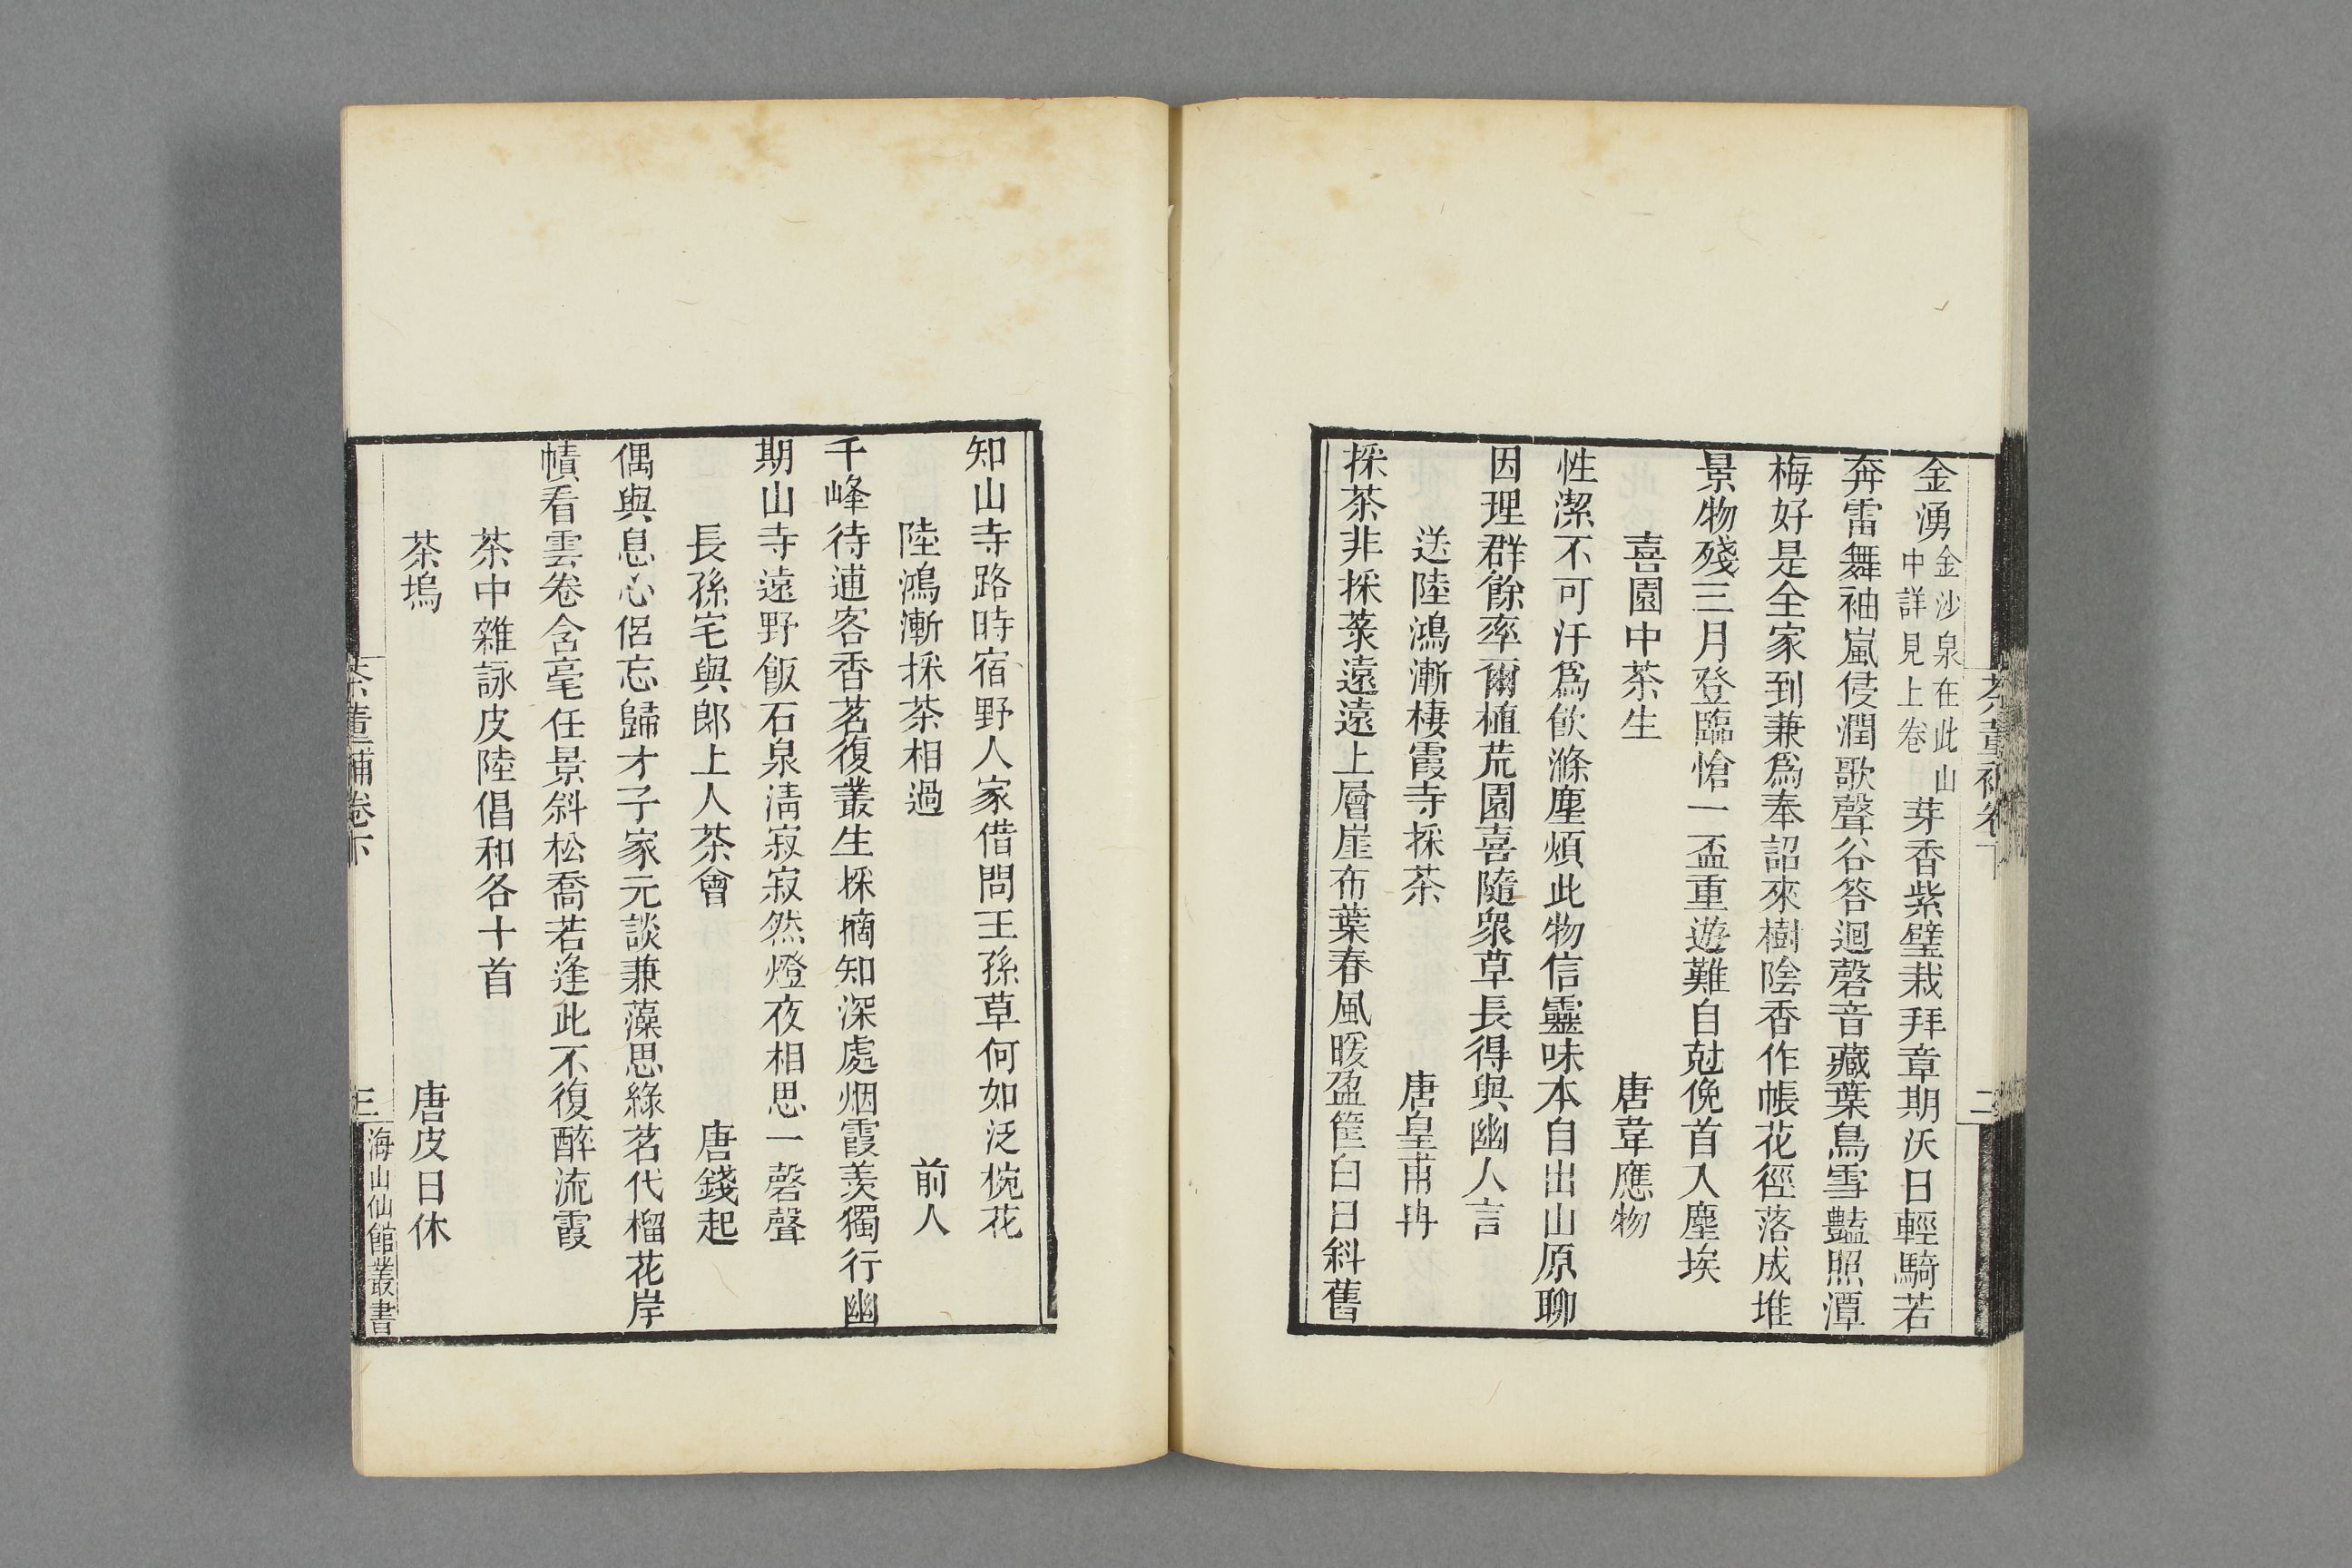 金湧金沙泉在此山中詳見上卷芽香紫璧栽拜章期沃日輕騎若
奔雷舞袖嵐侵潤歌聲谷答迴磬音藏葉鳥雪豔照潭
梅好是全家到兼爲奉詔來樹陰香作帳花徑落成堆
景物殘三月登臨愴一盃重遊難自尅俛首入塵埃
喜園中茶生 唐韋應物
性潔不可汙爲飲滌塵煩此物信靈味本自出山原聊
因理群餘率爾植荒園喜隨衆草長得與幽人言
送陸鴻漸棲霞寺採茶 唐皇甫冉
採茶非採菉遠遠上層崖布葉春風暖盈筐白日斜舊
知山寺路時宿野人家借問王孫草何如泛椀花
陸鴻漸採茶相過 前人
千峰待逋客香茗復叢生採摘知深處烟霞羨獨行幽
期山寺遠野飯石泉淸寂寂然燈夜相思一磬聲
長孫宅與郎上人茶會 唐錢起
偶與息心侶忘歸才子家元談兼藻思綠茗代榴花岸
幘看雲卷含毫任景斜松喬若逢此不復醉流霞
茶中雜詠皮陸倡和各十首
茶塢 唐皮日休
茶董補卷下
三
海山仙館叢書